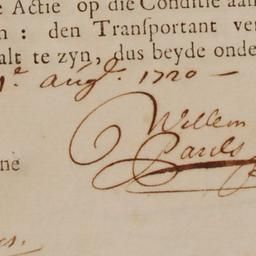 e Actie op die Conditie aan
n : den Transportant ver
alt te zyn, dus beyde onde
1e. augt. 1720 —
Willem
Pauls
ne